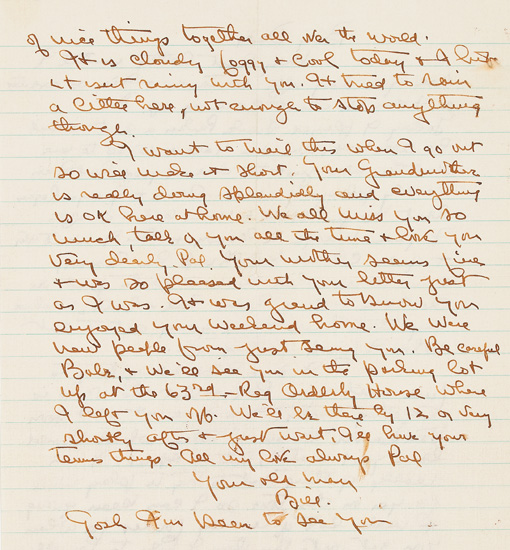 of nice things together all over the world.
It is cloudy foggy & cool today & I bet
it isnt rainy with you. It tried to rain
a little here, not enough to stop anything
though.
I want to mail this when I go out
so will make it short. Your Grandmother
is really doing splendidly and everything
is OK here at home. We all miss you so
much, talk of you all the time & love you
very dearly Pal. Your mother seems fine
& was so pleased with your letter just
as I was. It was grand to know you
enjoyed your weekend home. We were
new people from just seeing you. Be careful
& We'll see you in the parking lot
up at the 63rd Reg Orderly House where
I left you off. We'll be there by 12 or very
shortly after & just wait, I'll have your
tennis things. All my love always Pal
Your old man
Bill.
Gosh I'm keen to see you